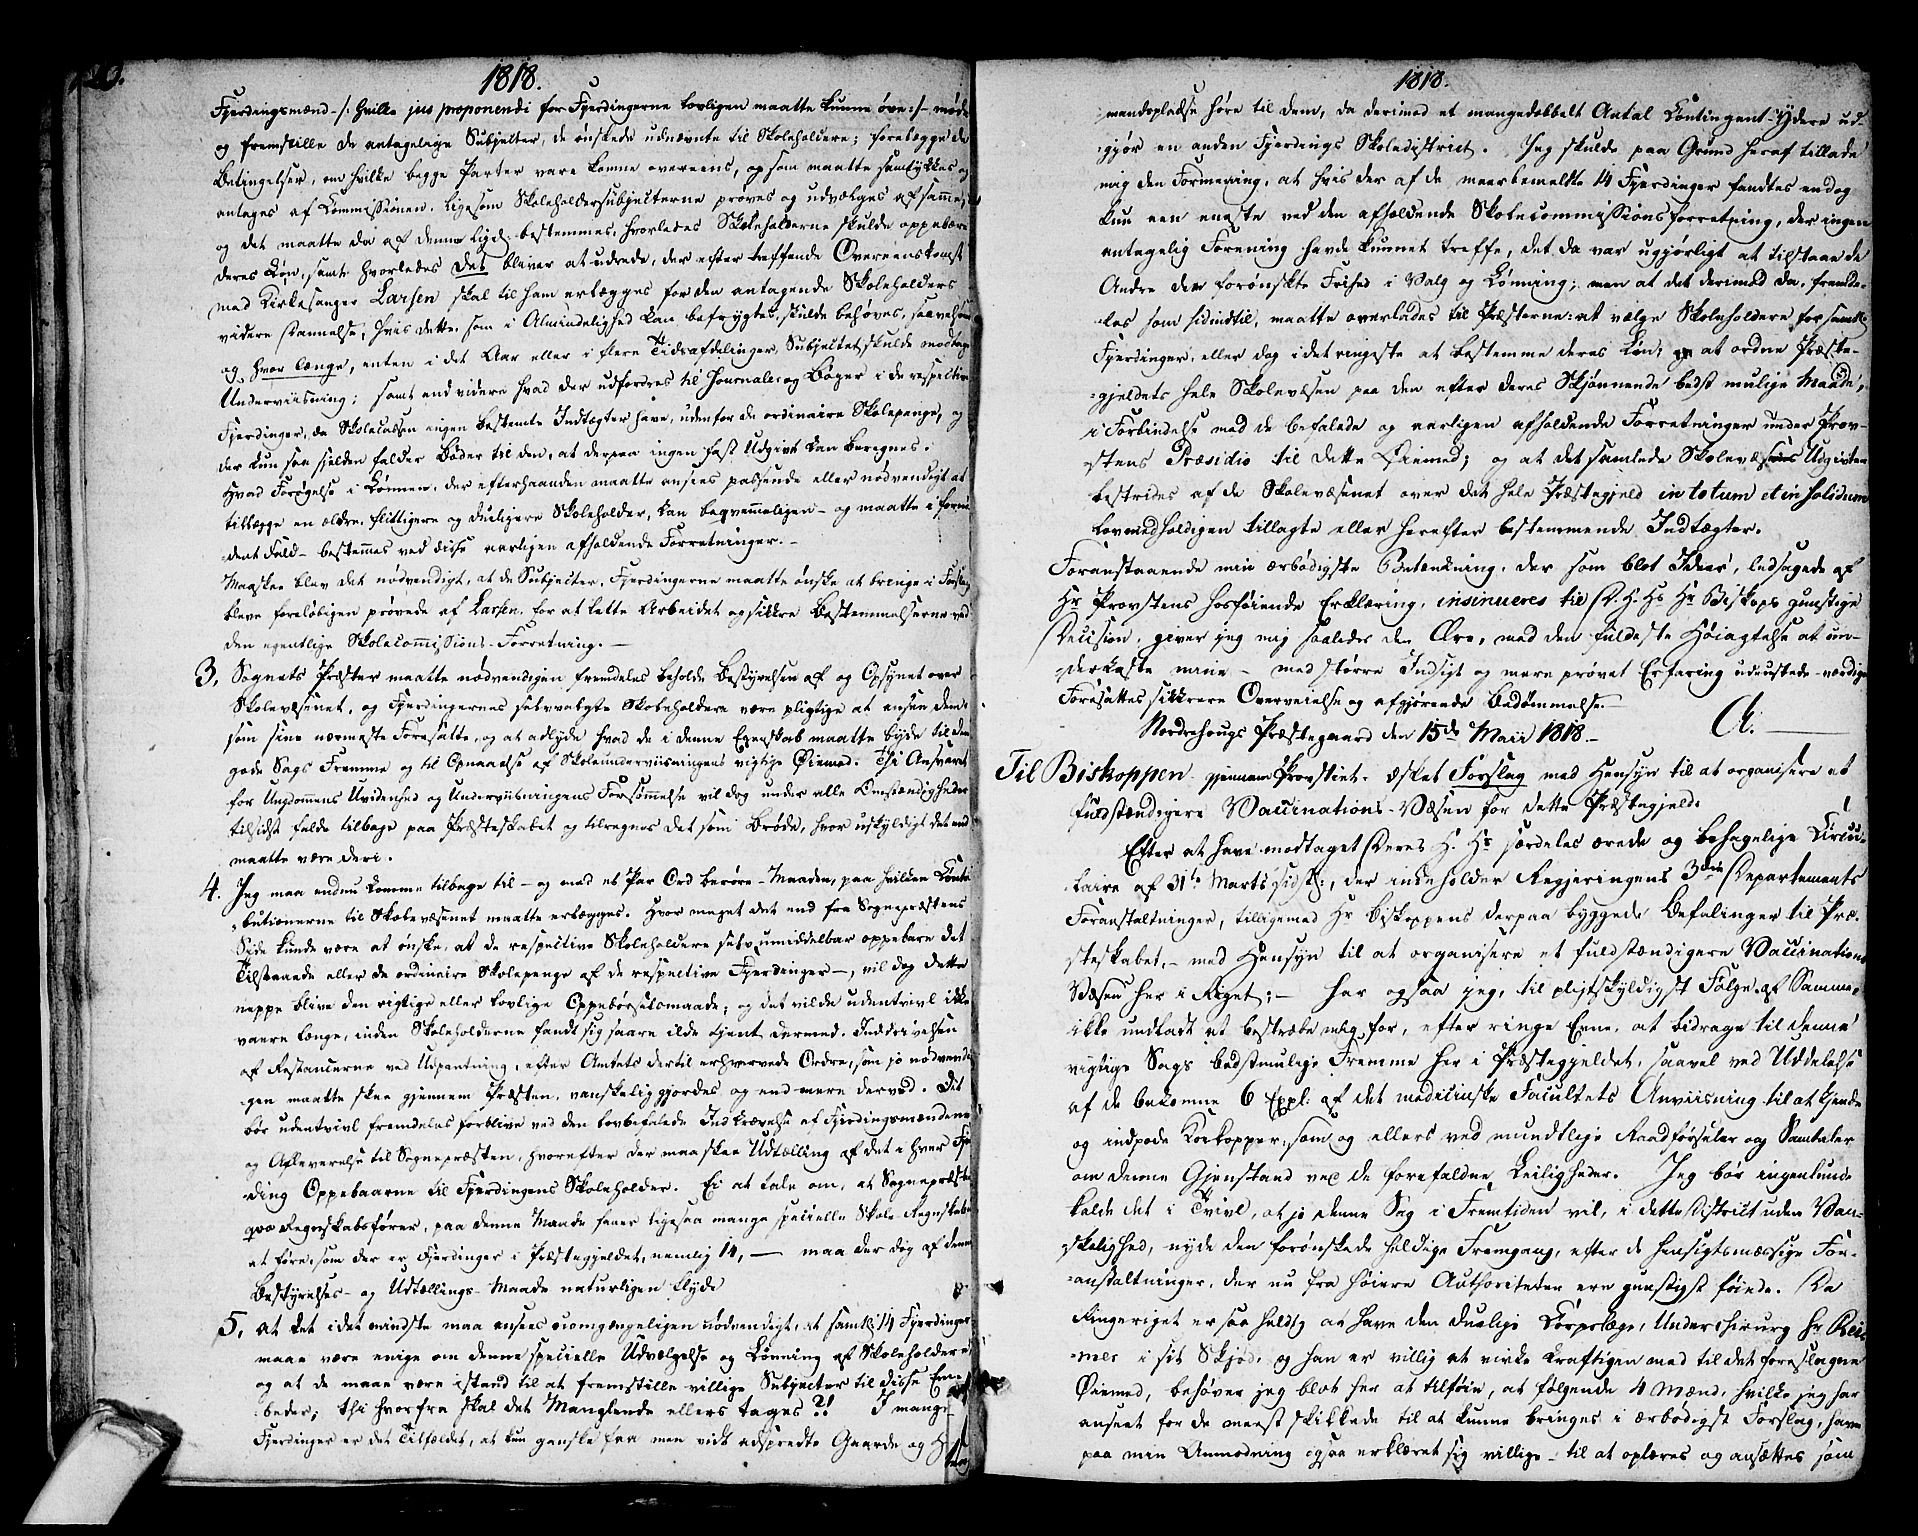 1818.
Fjerdingsmænd -/: hville jus proponendi for Fjerdingerne lovligen maatte kunne øve :/- møde
og fremstille de antagelige Subjecter, de ønskede udnævnte til Skoleholdere; forelægge de
Betingelser, om hvilke begge Parter vare komne overeens, og som maatte samtykkes og
antages af Commissionen, ligesom Skoleholdersubjecterne prøves og udvælges af samme,
og det maatte da af denne tyd. bestemmes, hvorledes Skoleholderne skulde oppebære
deres Løn, samt hvorledes det bliver at udrede, der efter træffende Overeenskomst
med Kirkesanger Larsen skal til ham erlægges for den antagende Skoleholders
videre Dannelse, hvis dette, som i Almindelighed kan befrygtes, skulde behøves, saavelsom
og hvor længe, enten i det Aar eller i flere Tidsafdelinger, Subjectet skulde modtage
Underviisning; samt end videre hvad der udfordres til Journaler og Bøger i de respective
Fjerdinger, da Skolecassen ingen bestemte Indtægter have, udenfor de ordinaire Skolepenge, og
der kun saa sjelden falder Bøder til den, at derpaa ingen fast Udgivt kan beregnes.
Hvad Forøgelse i Lønnen, der efterhaanden maatte ansees passende eller nødvendigt at
tillægge en ældre, flittigere og dueligere Skoleholder, kan beqvemmeligen - og maatte i fornø-
dent Fald - bestemmes ved disse aarligen afholdende Forretninger. -
Maaskee blev det nødvendigt, at de Subjecter, Fjerdingerne maatte ønske at bringe i Forslag,
bleve foreløbigen prøvede af Larsen, for at lette Arbeidet og sikkre Bestemmelserne ved
den egentlige Skolecommissions-Forretning. -
3, Sognets Præster maatte nødvendigen fremdeles beholde Bestyrelsen af og Opsynet over
Skolevæsenet, og Fjerdingernes selvvalgte Skoleholdere være pligtige at ansee dem
som sine nærmeste Foresatte, og at adlyde hvad de i denne Egenskab maatte byde til den
gode Sags Fremme og til Opnaaelse af Skoleunderviisningens vigtige Øiemed. Thi Ansvaret
for Ungdommens Uvidenhed og Underviisningens Forsømmelse vil dog under alle Omstændigheder
tilsidst falde tilbage paa Præsteskabet og tilregnes det som Brøde, hvor uskyldigt det end
maatte være deri.
4. Jeg maa endnu komme tilbage til - og med et Par Ord berøre - Maaden, paa hvilken Contri-
butionerne til Skolevæsenet maatte erlægges. Hvor meget det end fra Sognepræstens
Side kunde være at ønske, at de respective Skoleholdere selv umiddelbar oppebare det
Tilstaaede eller de ordinaire Skolepenge af de respective Fjerdinger -, vil dog dette
neppe blive den rigtige eller lovlige Oppebørselsmaade; og det vilde udentvivl ikke
vaere længe, inden Skoleholderne fandt sig saare ilde tjent dermed. Inddrivelsen
af Restancerne ved Udpantning, efter Amtets dertil erhvervede Ordre, som jo nødvendi-
gen maatte skee gjennem Præsten, vanskeliggjordes og end mere derved. Det
bør udentvivl fremdeles forblive ved den lovbefalede Indkrævelse af Fjerdingsmændene
og Afleverelse til Sognepræsten, hvorefter der maa skee Udtælling af det i hver Fjer-
ding Oppebaarne til Fjerdingens Skoleholder. Ei at tale om, at Sognepræsten
qva Regnskabsfører, paa denne Maade faaer ligesaa mange specielle Skole-Regnskaber
at føre, som der er Fjerdinger i Præstegjeldet, nemlig 14, — maa der dog af denne
Bestyrelses- og Udtællings-Maade naturligen flyde
5, at det idet mindste maa ansees uomgængeligen nødvendigt, at samtl. 14 Fjerdinger
maae være enige om denne specielle Udvælgelse og Lønning af Skoleholdere
og at de maae være istand til at fremstille villige Subjecter til disse Em-
beder; thi hvorfra skal det Manglende ellers tages?! I mange
Fjerdinger er det Tilfældet, at kun ganske faa men vidt adspredte Gaarde og H
1818.
mandspladse høre til dem, da derimod et mangedobbelt Antal Contingent-Ydere ud-
gjør en anden Fjerdings Skoledistrict. Jeg skulde paa Grund heraf tillade
mig den Formening, at hvis der af de meerbemeldte 14 Fjerdinger fandtes endog
kun een eneste ved den afholdende Skolecommissionsforretning, der ingen
antagelig Forening havde kunnet treffe, det da var ugjørligt at tilstaae de
Andre den forønskte Frihed i Valg og Lønning; men at det derimod da, fremde-
les som hidindtil, maatte overlades til Præsterne: at vælge Skoleholdere for samtl.
Fjerdinger, eller dog i det ringeste at bestemme deres Løn; at ordne Præste-
gjeldets hele Skolevæsen paa den efter deres Skjønnende bedst mulige Maade,
i Forbindelse med de befalede og aarligen afholdende Forretninger under Prov-
stens Præsidio til dette Øiemed; og at det samlede Skolevæsens Udgivter
bestrides af de Skolevæsenet over det hele Præstegjeld in totum et in solidum
lovmedholdigen tillagte eller herefter bestemmende Indtægter.
Foranstaaende min ærbødigste Betænkning, der som blot Ideer, ledsagede af
Hr Provstens hosføiende Erklæring, insinueres til D. H. Hs Hr Biskops gunstige
Decision, giver jeg mig saaledes den Ære, med den fuldeste Høiagtelse at un-
derkaste mine - med større Indsigt og mere prøvet Erfaring udrustede - værdige
Foresattes sikkrere Overveielse og afgjørende Bedømmelse. -
Norderhougs Præstegaard den 15de Maii 1818. - A.
Til Biskoppen gjennem Provstiet. æsket Forslag med Hensyn til at organisere et
fuldstændigere Vaccinations-Væsen for dette Præstegjeld.
Efter at have modtaget Deres H. Hs særdeles ærede og behagelige Circu-
laire af 31te Marts sidstl:, der indeholder Regjeringens 3die Departements
Foranstaltninger, tilligemed Hr Biskoppens derpaa byggede Befalinger til Præ-
steskabet, - med Hensyn til at organisere et fuldstændigere Vaccinations
Væsen her i Riget; - har ogsaa jeg, til pligtskyldigst Følge af Samme,
ikke undladt at bestræbe mig for, efter ringe Evne, at bidrage til denne
vigtige Sags bedstmulige Fremme her i Præstegjeldet, saavel ved Uddelelse
af de bekomne 6 Expl: af det medicinske Facultets Anviisning til at kjende
og indpode Kokopper, som og ellers ved mundtlige Raadførseler og Samtaler
om denne Gjenstand ved de forefaldne Leiligheder. Jeg bør ingenlunde
kalde det i Tvivl, at jo denne Sag i Fremtiden vil, i dette District uden Van-
skelighed, nyde den forønskede heldige Fremgang, efter de hensigtsmæssige For-
anstaltninger, der nu fra høiere Authoriteter ere gunstigst føiede. Da
Ringeriget er saa heldig at have den duelige Corpslæge, Underchirurg Hr Rei-
mers i sit Skjød, og han er villig at virke kraftigen med til det foreslagne
Øiemed, behøver jeg blot her at tilføie, at følgende 4 Mænd, hvilke jeg har
anseet for de meest skikkede til at kunne bringes i ærbødigst Forslag, have
paa min Anmodning ogsaa erklæret sig villige - til at oplæres og ansættes som